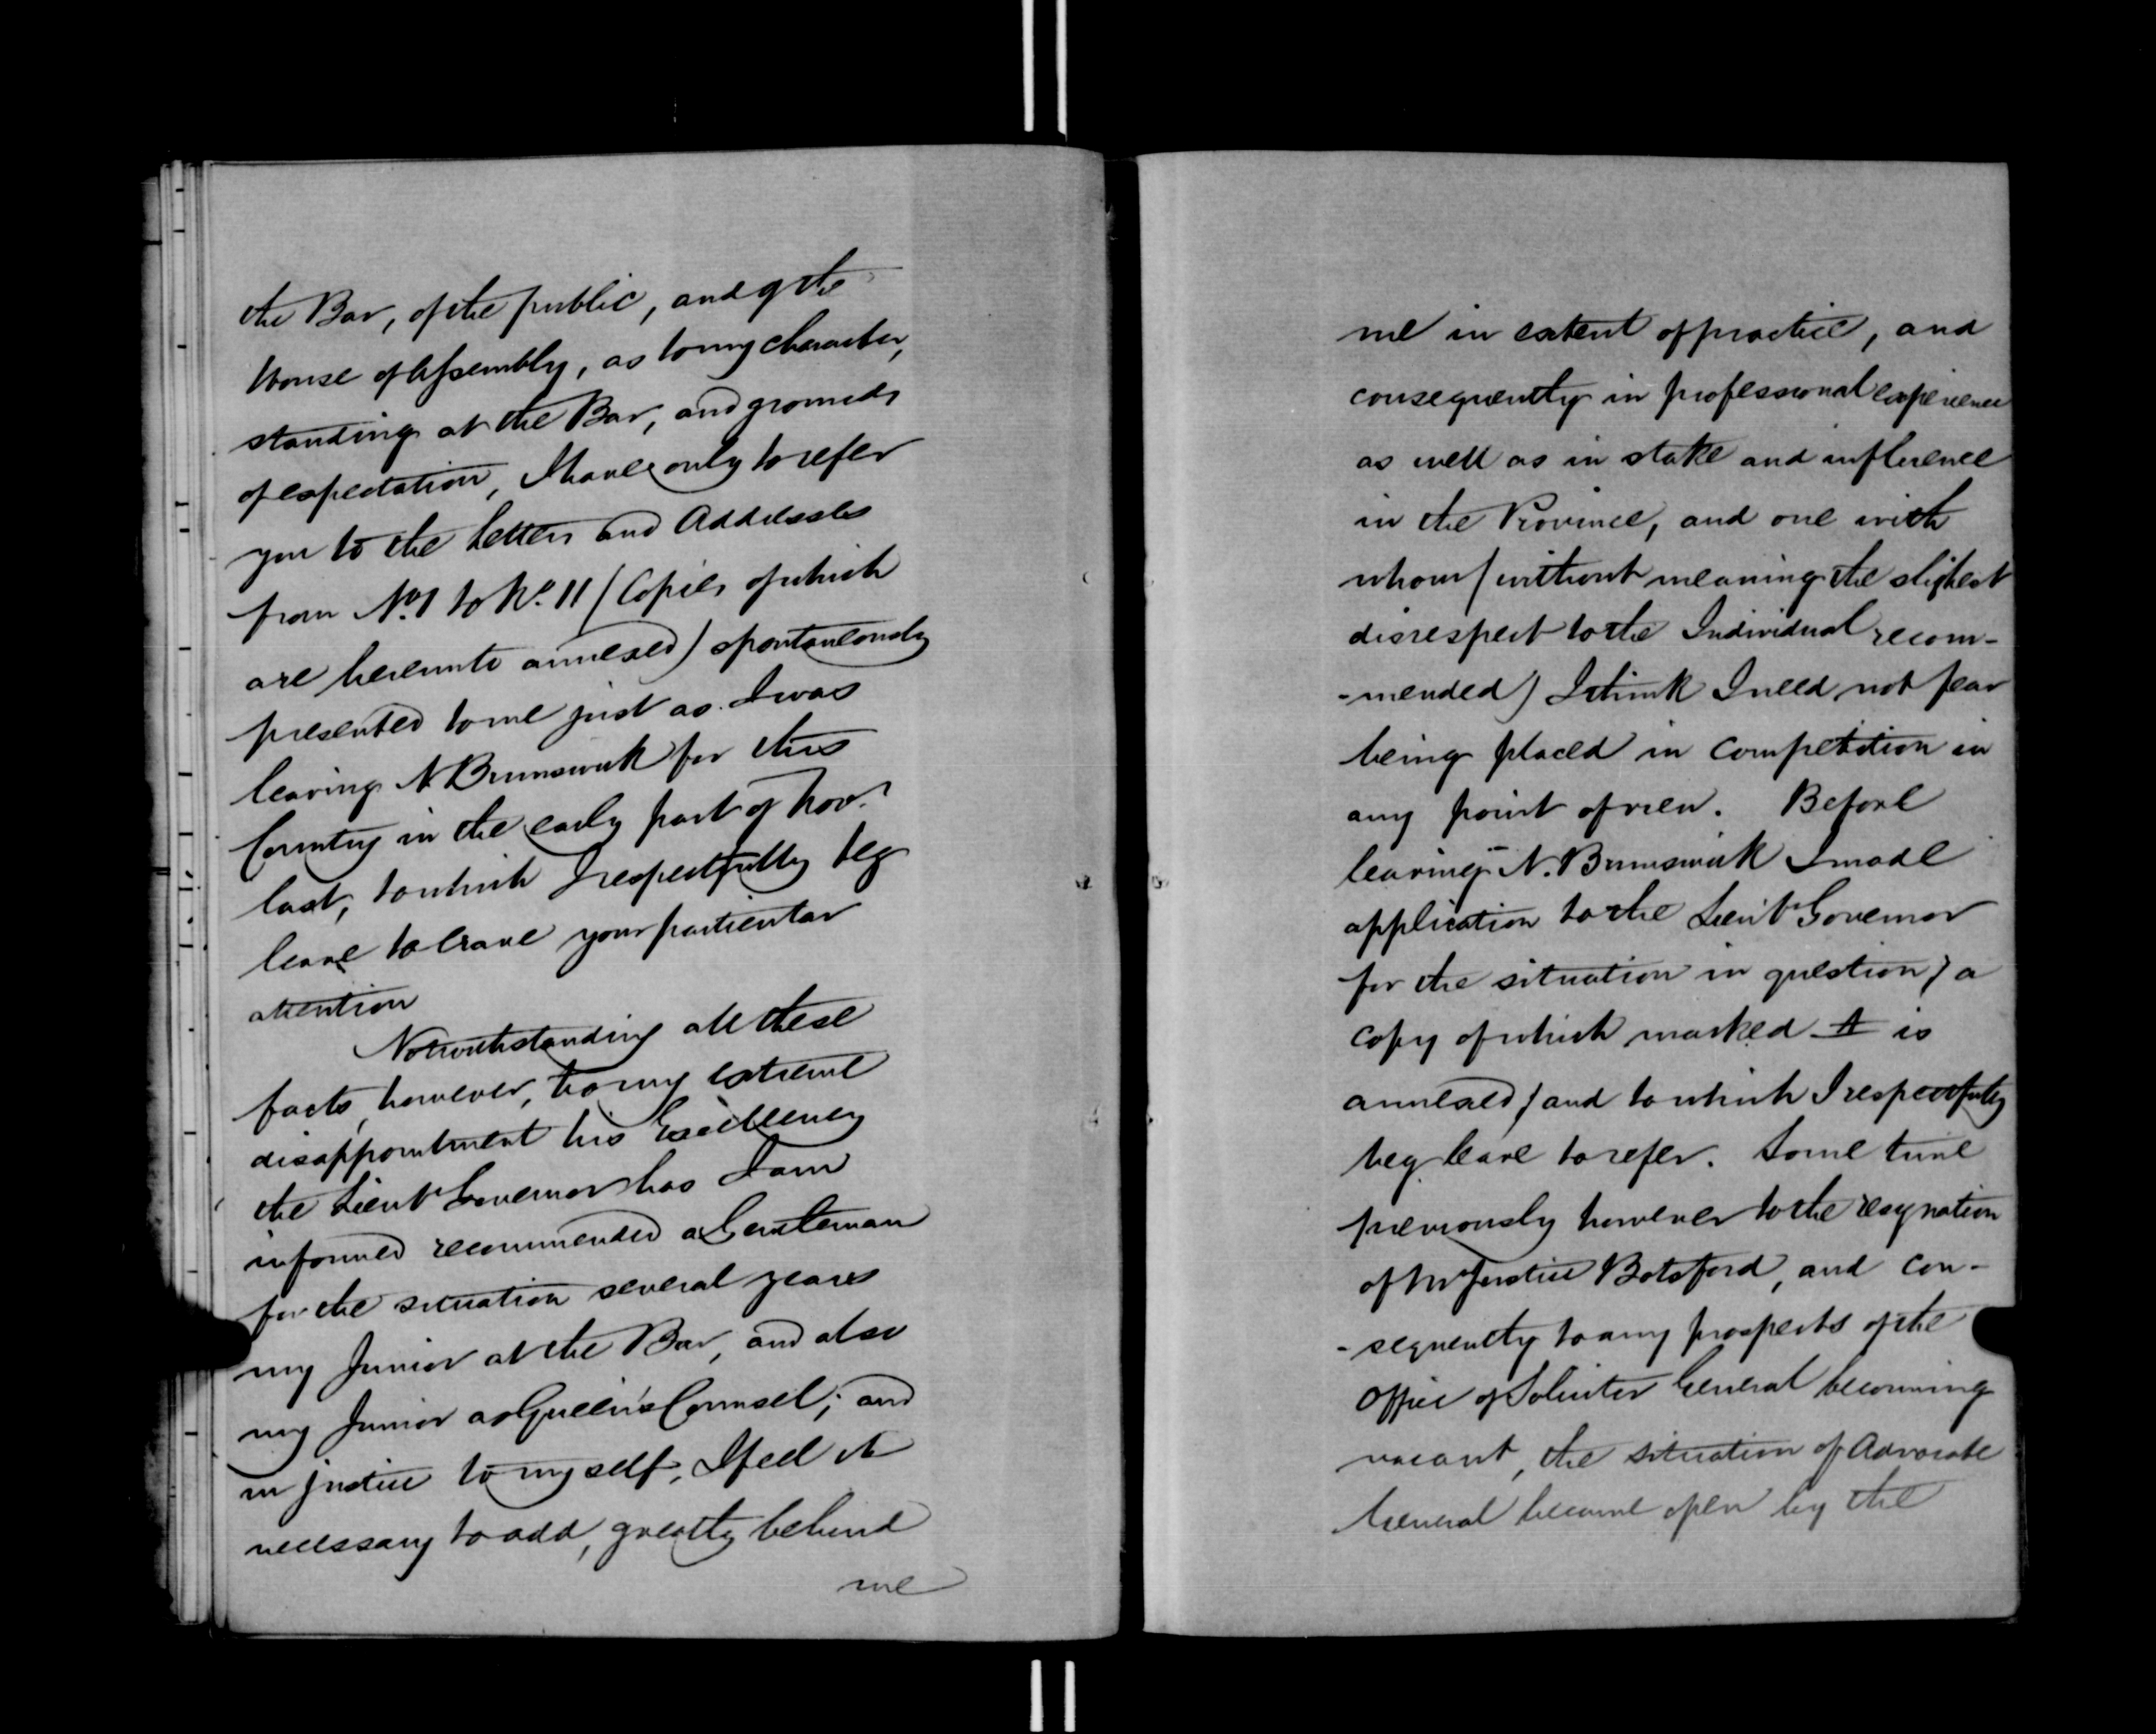 the Bar, of the public, and of the
House of Assembly, as to my character,
standing at the Bar, and grounds
of expectation, I have only to refer
you to the Letters and Addresses
from No. 1 to No. 11 (Copies of which
are hereunto annexed) spontaneously
presented to me just as I was
leaving N Brunswick for this
Country in the early part of Novr.
last, to which I respectfully beg
leave to crave your particular
attention
Notwithstanding all these
facts, however, to my extreme
disappointment his Excellency
the Lieut Governor has I am
informed recommended a Gentleman
for the situation several years
my Junior at the Bar, and also
my Junior as Queen's Counsel; and
in justice to myself, I feel it
necessary to add, greatly behind
me
me in extent of practice, and
consequently in professional experience
as well as in stake and influence
in the Province, and one with
whom (without meaning the slighest
disrespect to the Individual recom-
-mended) I think I need not fear
being placed in competition in
any point of view. Before
leaving N. Brunswick I made
application to the Lieut Governor
for the situation in question) a
copy of which marked A is
annexed) and to which I respectfully
beg leave to refer. Some time
previously however to the resignation
of Mr Justice Botsford, and con-
-sequently to any prospects of the
Office of Solicitor General becoming
vacant, the situation of Advocate
General became open by the